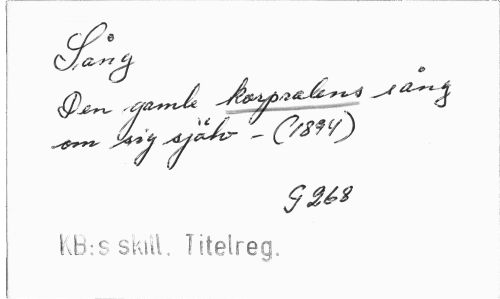 Sång
Den gamle korpralens sång
om sig själv - (1894)
G 268
KB:s skill. Titelreg.